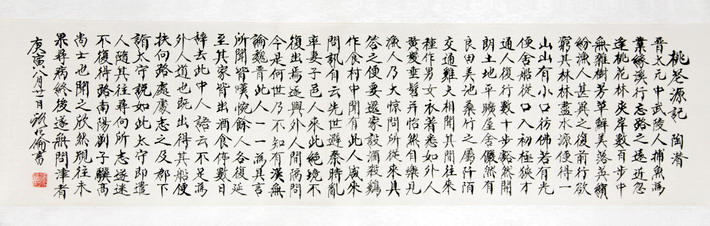 桃花源記 陶潛
晉太元中武陵人捕魚為
業緣溪行忘路之遠近忽
逢桃花林夾岸數百步中
無雜樹芳草鮮美落英繽
紛漁人甚異之復前行欲
窮其林林盡水源便得一
山山有小口彷彿若有光
便舍船從口入初極狹才
通人復行數十步豁然開
朗土地平曠屋舍儼然有
良田美池桑竹之屬阡陌
交通雞犬相聞其間往來
種作男女衣著悉如外人
黃髮垂髫並怡然自樂見
漁人乃大驚問所從來具
答之便要還家設酒殺雞
作食村中聞有此人咸來
問訊自云先世避秦時亂
率妻子邑人來此絕境不
復出焉遂與外人間隔問
今是何世乃不知有漢無
論魏晉此人一一為具言
所聞皆嘆惋餘人各復延
至其家皆出酒食停數日
辭去此中人語云不足為
外人道也既出得其船便
扶向路處處志之及郡下
詣太守說如此太守即遣
人隨其往尋向所志遂迷
不復得路南陽劉子驥高
尚士也聞之欣然規往未
果尋病終後遂無問津者
庚寅八月廿一日 書